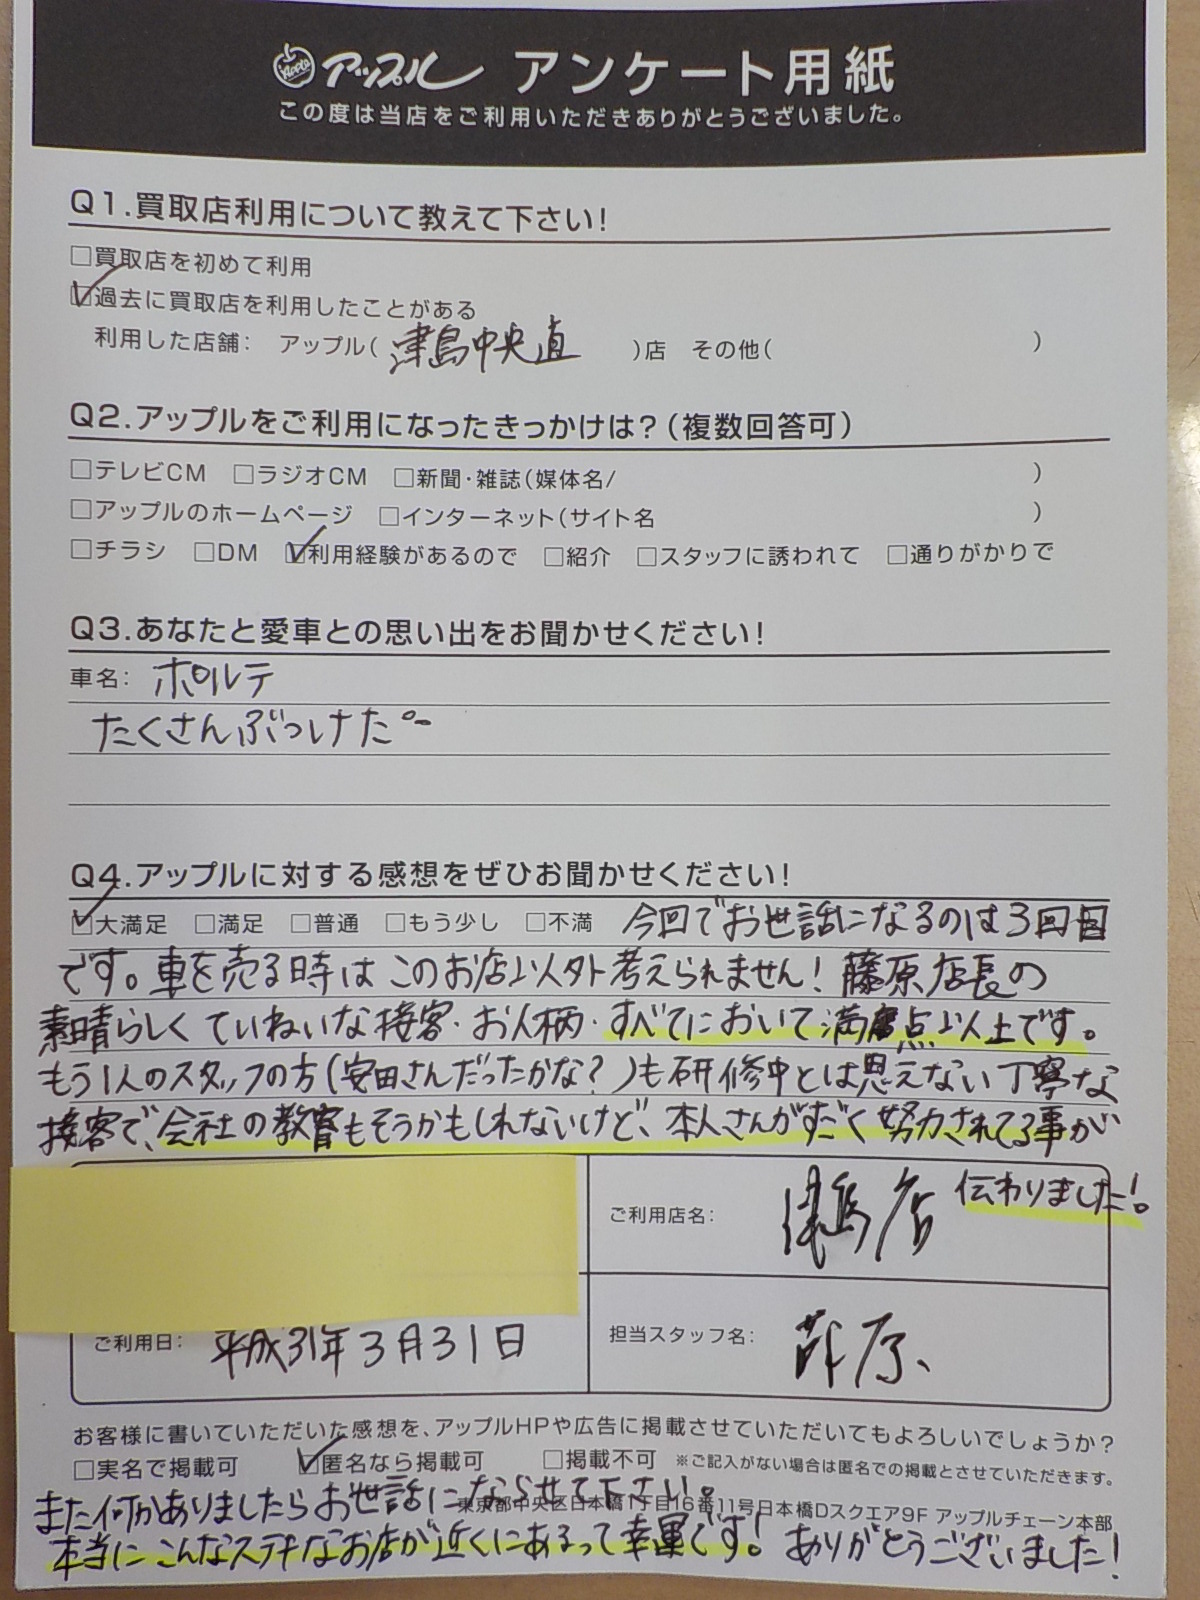 Apple アップル アンケート用紙
この度は当店をご利用いただきありがとうございました。
Q1.買取店利用について教えて下さい!
□買取店を初めて利用
☑過去に買取店を利用したことがある
利用した店舗: アップル(津島中央直)店 その他( )
Q2.アップルをご利用になったきっかけは?(複数回答可)
□テレビCM □ラジオCM □新聞・雑誌(媒体名/ )
□アップルのホームページ □インターネット(サイト名 )
□チラシ □DM ☑利用経験があるので □紹介 □スタッフに誘われて □通りがかりで
Q3.あなたと愛車との思い出をお聞かせください!
車名: ポルテ
たくさんぶつけた。
Q4.アップルに対する感想をぜひお聞かせください!
☑大満足 □満足 □普通 □もう少し □不満 今回でお世話になるのは3回目
です。車を売る時はこのお店以外考えられません! 藤原店長の
素晴らしくていねいな接客・お人柄・すべてにおいて満足点以上です。
もう1人のスタッフの方(安田さんだったかな?)も研修中とは思えない丁寧な
接客で、会社の教育もそうかもしれないけど、本人さんがすごく努力されてる事が
伝わりました!。
ご利用店名: 津島店
ご利用日: 平成31年3月31日
担当スタッフ名: 藤原、
お客様に書いていただいた感想を、アップルHPや広告に掲載させていただいてもよろしいでしょうか?
□実名で掲載可 ☑匿名なら掲載可 □掲載不可 ※ご記入がない場合は匿名での掲載とさせていただきます。
また何かありましたらお世話にならせて下さい。
東京都中央区日本橋1丁目16番11号日本橋Dスクエア9F アップルチェーン本部
本当にこんなステキなお店が近くにあるって幸運です! ありがとうございました!